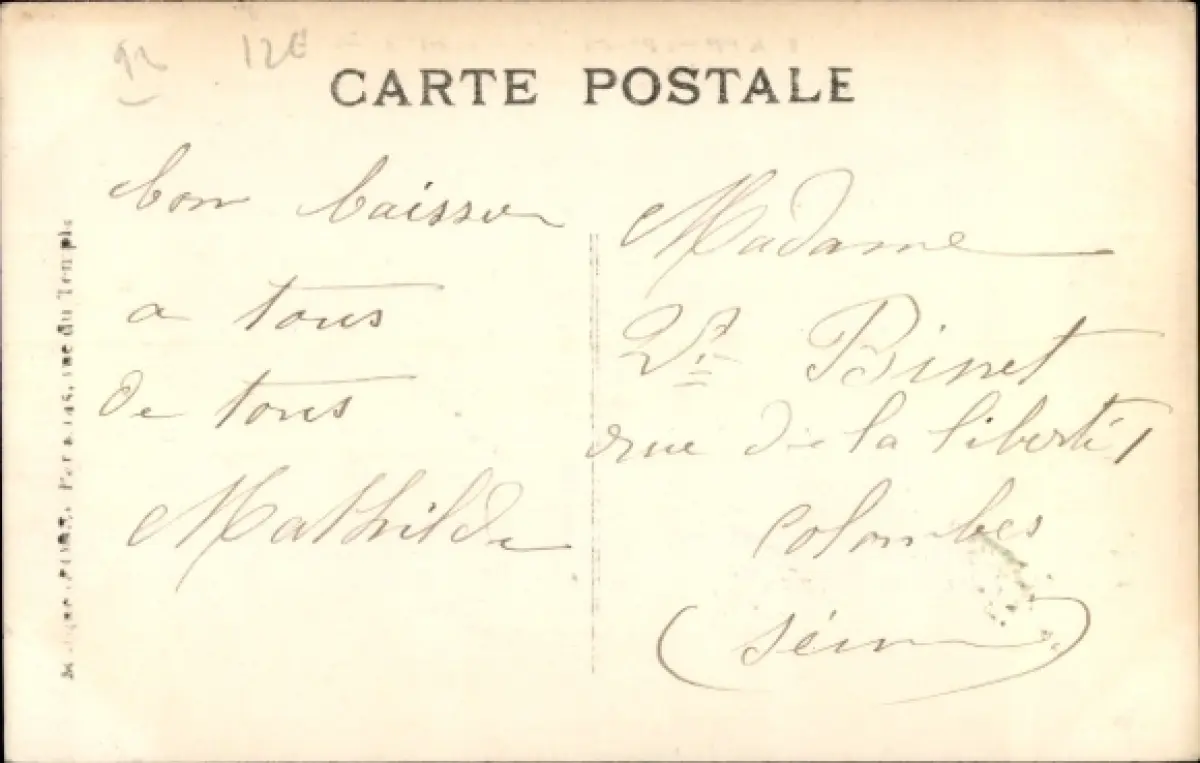 92 12€
CARTE POSTALE
bon baiser
a tous
de tous
Mathilde
Madame
Vve Binet
rue de la liberté 1
Colombes
(Séine)
rue du Temple